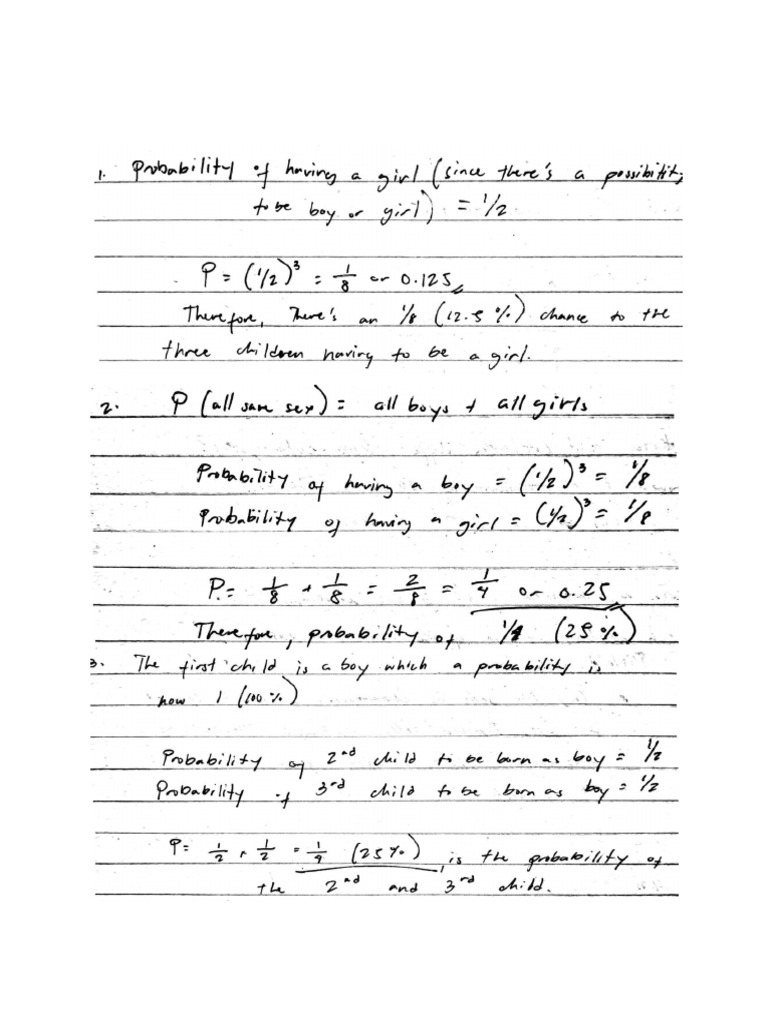 1. Probability of having a girl (since there's a possibility
to be boy or girl) = 1/2
P = (1/2)³ = 1/8 or 0.125
Therefore, There's an 1/8 (12.5 %) chance to the
three children having to be a girl.
2. P (all same sex) = all boys + all girls
Probability of having a boy = (1/2)³ = 1/8
Probability of having a girl = (1/2)³ = 1/8
P = 1/8 + 1/8 = 2/8 = 1/4 or 0.25
Therefore, probability of 1/4 (25 %)
3. The first child is a boy which a probability is
now 1 (100 %)
Probability of 2nd child to be born as boy = 1/2
Probability of 3rd child to be born as boy = 1/2
P = 1/2 + 1/2 = 1/4 (25 %), is the probability of
the 2nd and 3rd child.